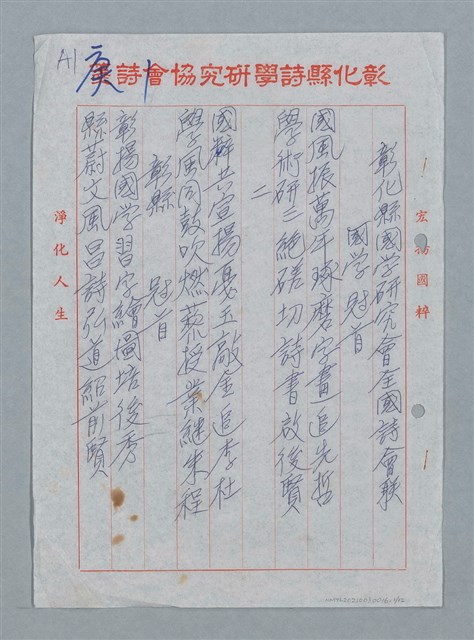 彰化縣詩學研究協會詩箋
A1
庚
宏揚國粹
淨化人生
彰化縣國学研究會全國詩會聯
國学 冠首
國風振萬年琢磨字畫追先哲
學術研三絕磋切詩書啟後賢
二
國粹共宣揚戛玉敲金追李杜
學風同鼓吹燃藜授業繼朱程
彰縣 冠首
彰揚國学習字繪圖培後秀
縣蔚文風昌詩弘道紹前賢